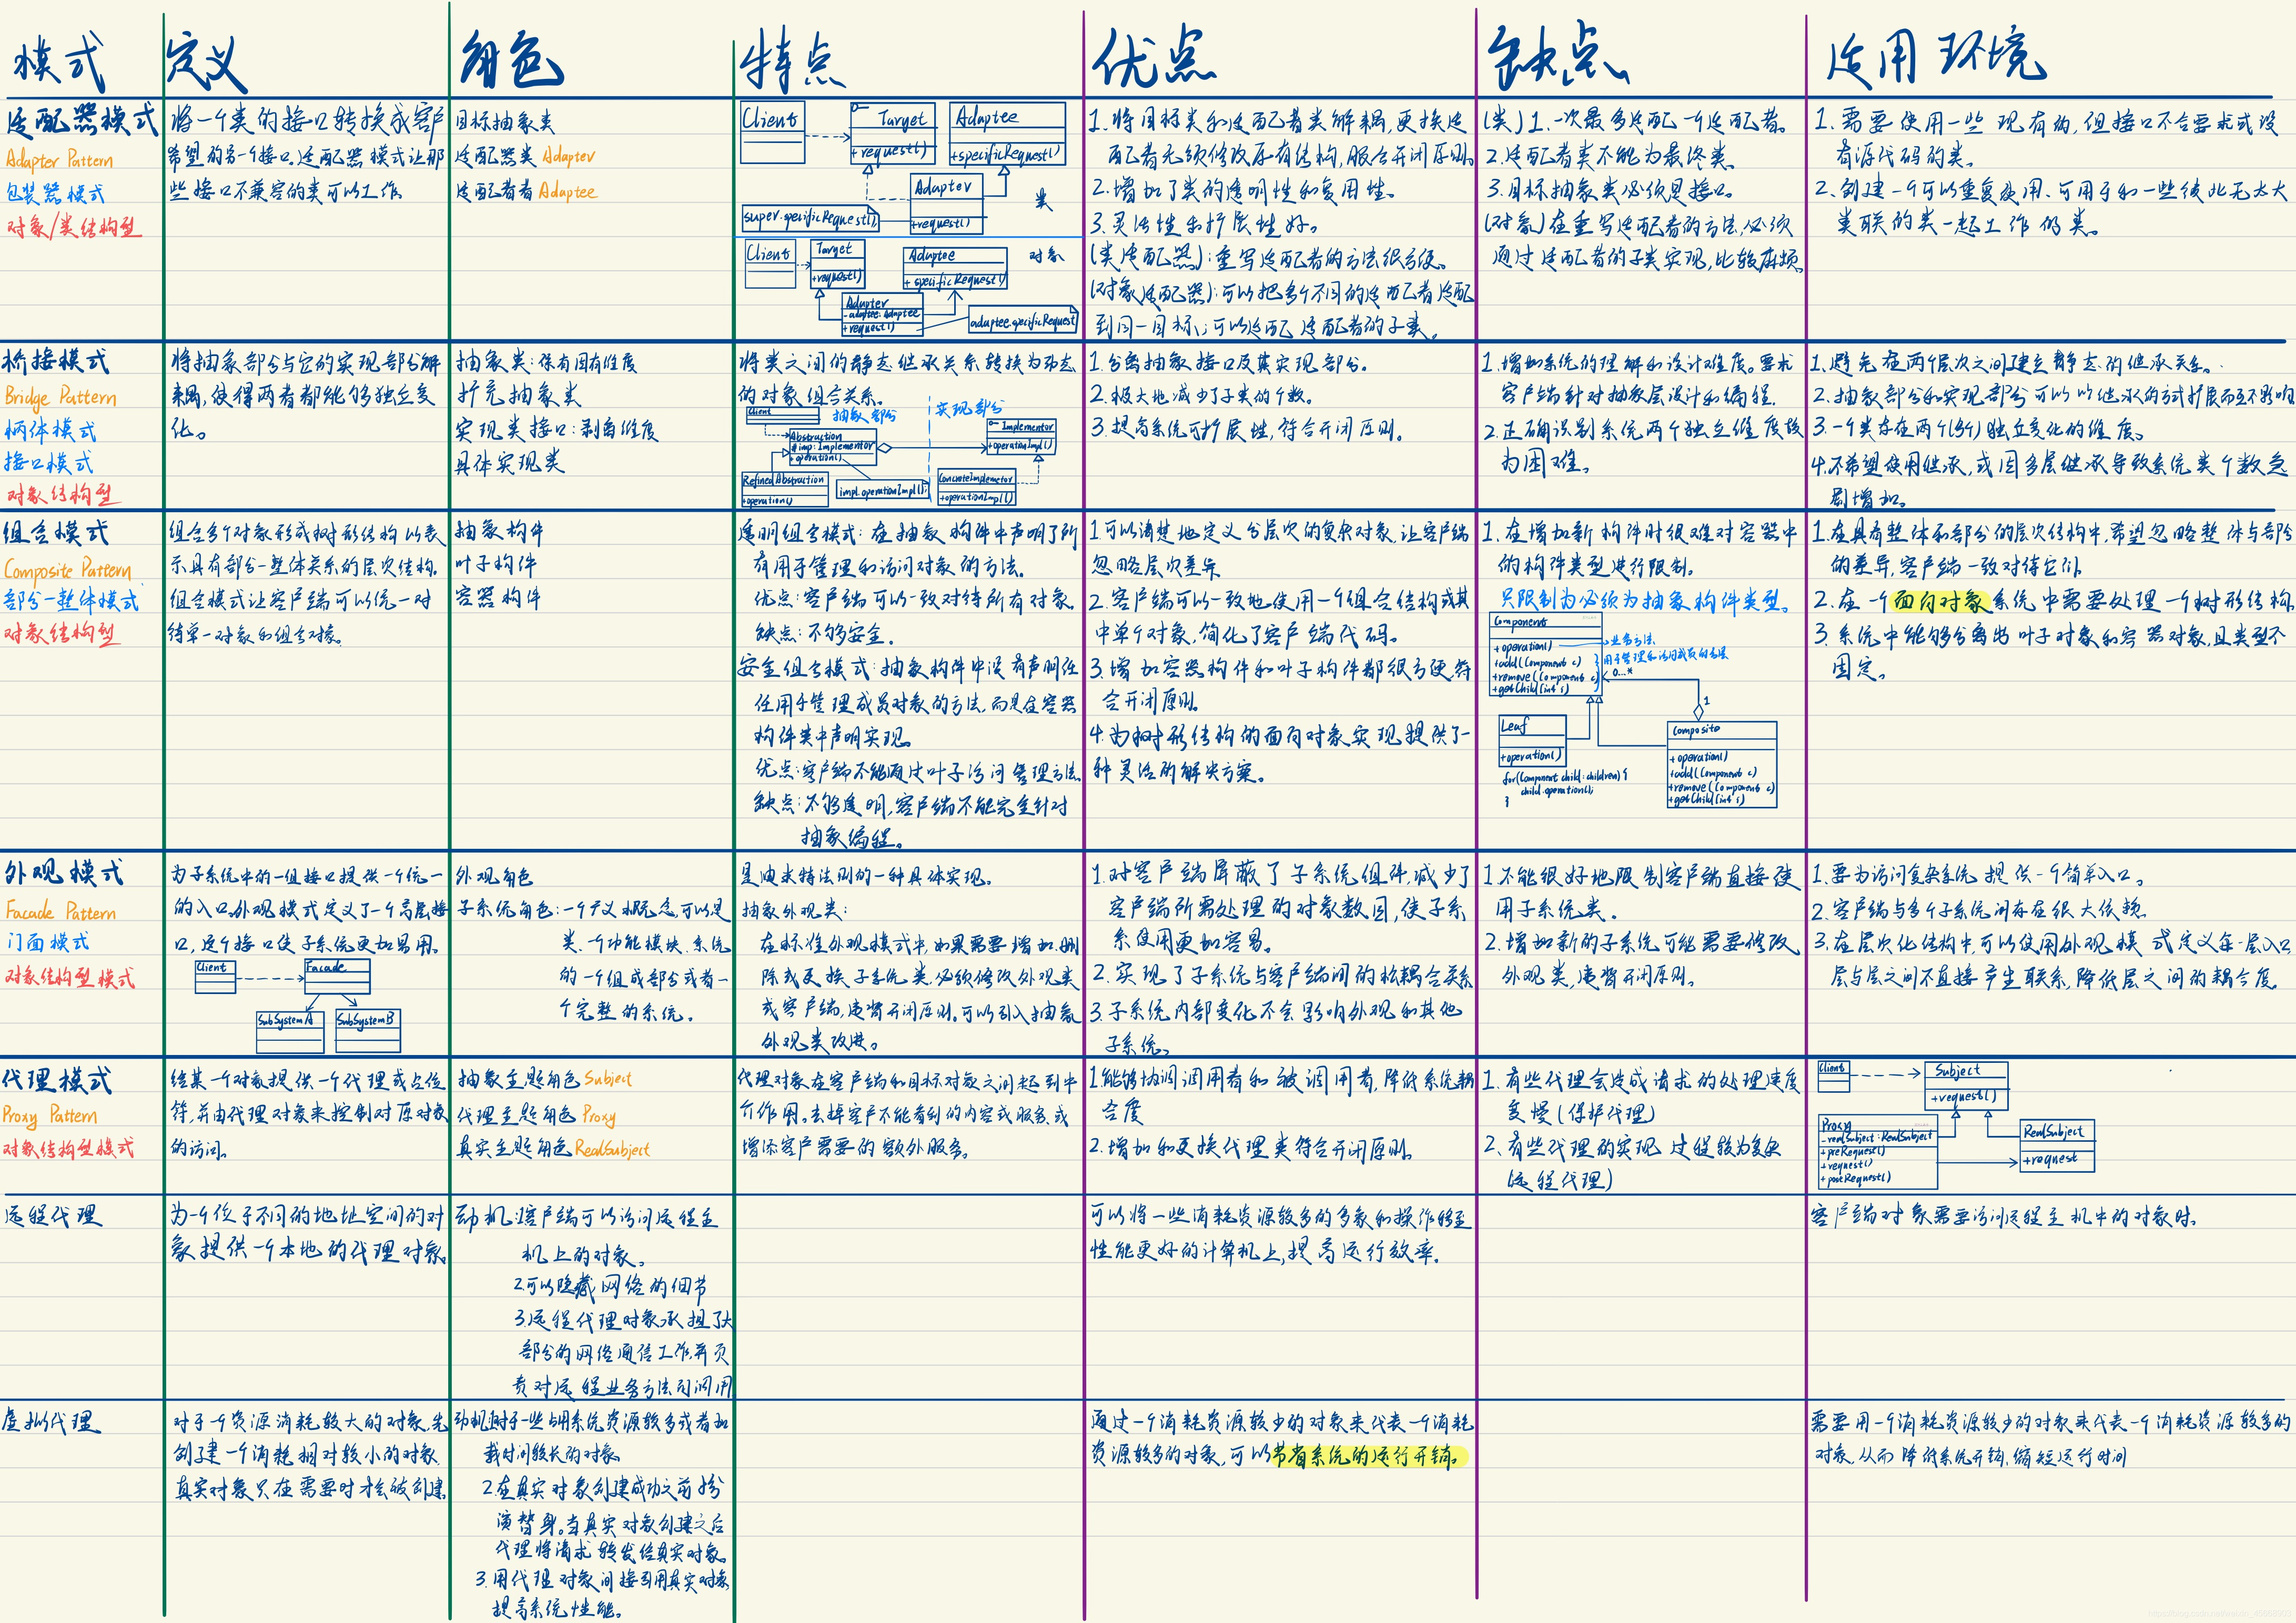 模式
定义
角色
特点
优点
缺点
适用环境
适配器模式
Adapter Pattern
包装器模式
对象/类结构型
将一个类的接口转换成客户
希望的另一个接口。适配器模式让那
些接口不兼容的类可以工作。
目标抽象类
适配器类 Adapter
适配者者 Adaptee
Client
Target
+request()
Adaptee
+specificRequest()
Adapter
+request()
super.specificRequest();
类
Client
Target
+request()
Adaptee
+ specificRequest()
对象
Adapter
-adaptee:Adaptee
+request()
adaptee.specificRequest
1.将目标类和适配者类解耦,更换适
配者无须修改原有结构,服合开闭原则。
2.增加了类的透明性和复用性。
3.灵活性和扩展性好。
(类适配器):重写适配者的方法很方便。
(对象适配器):可以把多个不同的适配者适配
到同一目标;可以适配适配者的子类。
(类)1.一次最多适配一个适配者。
2.适配者类不能为最终类。
3.目标抽象类必须是接口。
(对象)在重写适配者的方法,必须
通过适配者的子类实现,比较麻烦。
1.需要使用一些现有的,但接口不合要求或没
有源代码的类。
2.创建一个可以重复使用、可用于和一些彼此无太大
关联的类一起工作的类。
桥接模式
Bridge Pattern
柄体模式
接口模式
对象结构型
将抽象部分与它的实现部分解
耦,使得两者都能够独立变
化。
抽象类:保有固有维度
扩充抽象类
实现类接口:剥离维度
具体实现类
将类之间的静态继承关系转换为动态
的对象组合关系。
Client
抽象部分
实现部分
Abstraction
#imp:Implementor
+operation()
Implementor
+operationImpl()
RefinedAbstraction
+operation()
impl.operationImpl();
ConcreteImplementor
+operationImpl()
1.分离抽象接口及其实现部分。
2.极大地减少了子类的个数。
3.提高系统可扩展性,符合开闭原则。
1.增加系统的理解和设计难度。要求
客户端针对抽象层设计和编程.
2.正确识别系统两个独立维度较
为困难。
1.避免在两个层次之间建立静态的继承关系。
2.抽象部分和实现部分可以以继承的方式扩展而互不影响
3.一个类存在两个(多个)独立变化的维度。
4.不希望使用继承,或因多层继承导致系统类个数急
剧增加。
组合模式
Composite Pattern
部分-整体模式
对象结构型
组合多个对象形成树形结构以表
示具有部分-整体关系的层次结构。
组合模式让客户端可以统一对
待单一对象和组合对象。
抽象构件
叶子构件
容器构件
透明组合模式:在抽象构件中声明了所
有用于管理和访问对象的方法。
优点:客户端可以一致对待所有对象。
缺点:不够安全.
安全组合模式:抽象构件中没有声明任
任用于管理成员对象的方法,而是在容器
构件类中声明实现。
优点:客户端不能通过叶子访问管理方法。
缺点:不够透明,客户端不能完全针对
抽象编程。
1.可以清楚地定义分层次的复杂对象,让客户端
忽略层次差异
2.客户端可以一致地使用一个组合结构或其
中单个对象,简化了客户端代码。
3.增加容器构件和叶子构件都很方便,符
合开闭原则。
4.为树形结构的面向对象实现提供了一
种灵活的解决方案。
1.在增加新构件时很难对容器中
的构件类型进行限制。
只限制为必须为抽象构件类型。
Component
+operation()
+add(Component c)
+remove(Component c)
+getChild(int i)
业务方法
用于管理和访问成员的方法
0..*
1
Leaf
+operation()
for(Component child:children) {
child.operation();
}
Composite
+operation()
+add(Component c)
+remove(Component c)
+getChild(int i)
1.在具有整体和部分的层次结构中,希望忽略整体与部分
的差异,客户端一致对待它们.
2.在一个面向对象系统中需要处理一个树形结构。
3.系统中能够分离出叶子对象和容器对象,且类型不
固定。
外观模式
Facade Pattern
门面模式
对象结构型模式
为子系统中的一组接口提供一个统一
的入口.外观模式定义了一个高层接
口,这个接口使子系统更加易用。
Client
Facade
SubSystemA
SubSystemB
外观角色
子系统角色:一个广义概念,可以是
类、一个功能模块、系统
的一个组成部分或者一
个完整的系统。
是迪米特法则的一种具体实现。
抽象外观类:
在标准外观模式中,如果需要增加、删
除或更换子系统类,必须修改外观类
或客户端,违背开闭原则。可以引入抽象
外观类改进。
1.对客户端屏蔽了子系统组件,减少了
客户端所需处理的对象数目,使子系
系使用更加容易。
2.实现了子系统与客户端间的松耦合关系
3.子系统内部变化不会影响外观和其他
子系统。
1.不能很好地限制客户端直接使
用子系统类.
2.增加新的子系统可能需要修改
外观类,违背开闭原则。
1.要为访问复杂系统提供一个简单入口。
2.客户端与多个子系统间存在很大依赖.
3.在层次化结构中,可以使用外观模式定义每一层入口,
层与层之间不直接产生联系,降低层之间的耦合度。
代理模式
Proxy Pattern
对象结构型模式
给某一个对象提供一个代理或占位
符,并由代理对象来控制对原对象
的访问。
抽象主题角色Subject
代理主题角色Proxy
真实主题角色RealSubject
代理对象在客户端和目标对象之间起到中
介作用。去掉客户不能看到的内容或服务,或
增添客户需要的额外服务。
1.能够协调调用者和被调用者,降低系统耦
合度
2.增加和更换代理类符合开闭原则。
1.有些代理会造成请求的处理速度
变慢(保护代理)
2.有些代理的实现过程较为复杂
(远程代理)
Client
Subject
+request()
Proxy
-realSubject:RealSubject
+preRequest()
+request()
+postRequest()
RealSubject
+request
远程代理
为一个位于不同的地址空间的对
象提供一个本地的代理对象
动机:1.客户端可以访问远程主
机上的对象。
2.可以隐藏网络的细节
3.远程代理对象承担了大
部分的网络通信工作,并负
责对远程业务方法的调用
可以将一些消耗资源较多的多象和操作移至
性能更好的计算机上,提高运行效率.
客户端对象需要访问远程主机中的对象时.
虚拟代理
对于一个资源消耗较大的对象,先
创建一个消耗相对较小的对象.
真实对象只在需要时才会被创建
动机:1.对于一些占用系统资源较多或者加
载时间较长的对象
2.在真实对象创建成功之前扮
演替身。当真实对象创建之后
代理将请求转发给真实对象。
3.用代理对象间接引用真实对象
提高系统性能。
通过一个消耗资源较少的对象来代表一个消耗
资源较多的对象,可以节省系统的运行开销。
需要用一个消耗资源较少的对象来代表一个消耗资源较多的
对象,从而降低系统开销,缩短运行时间